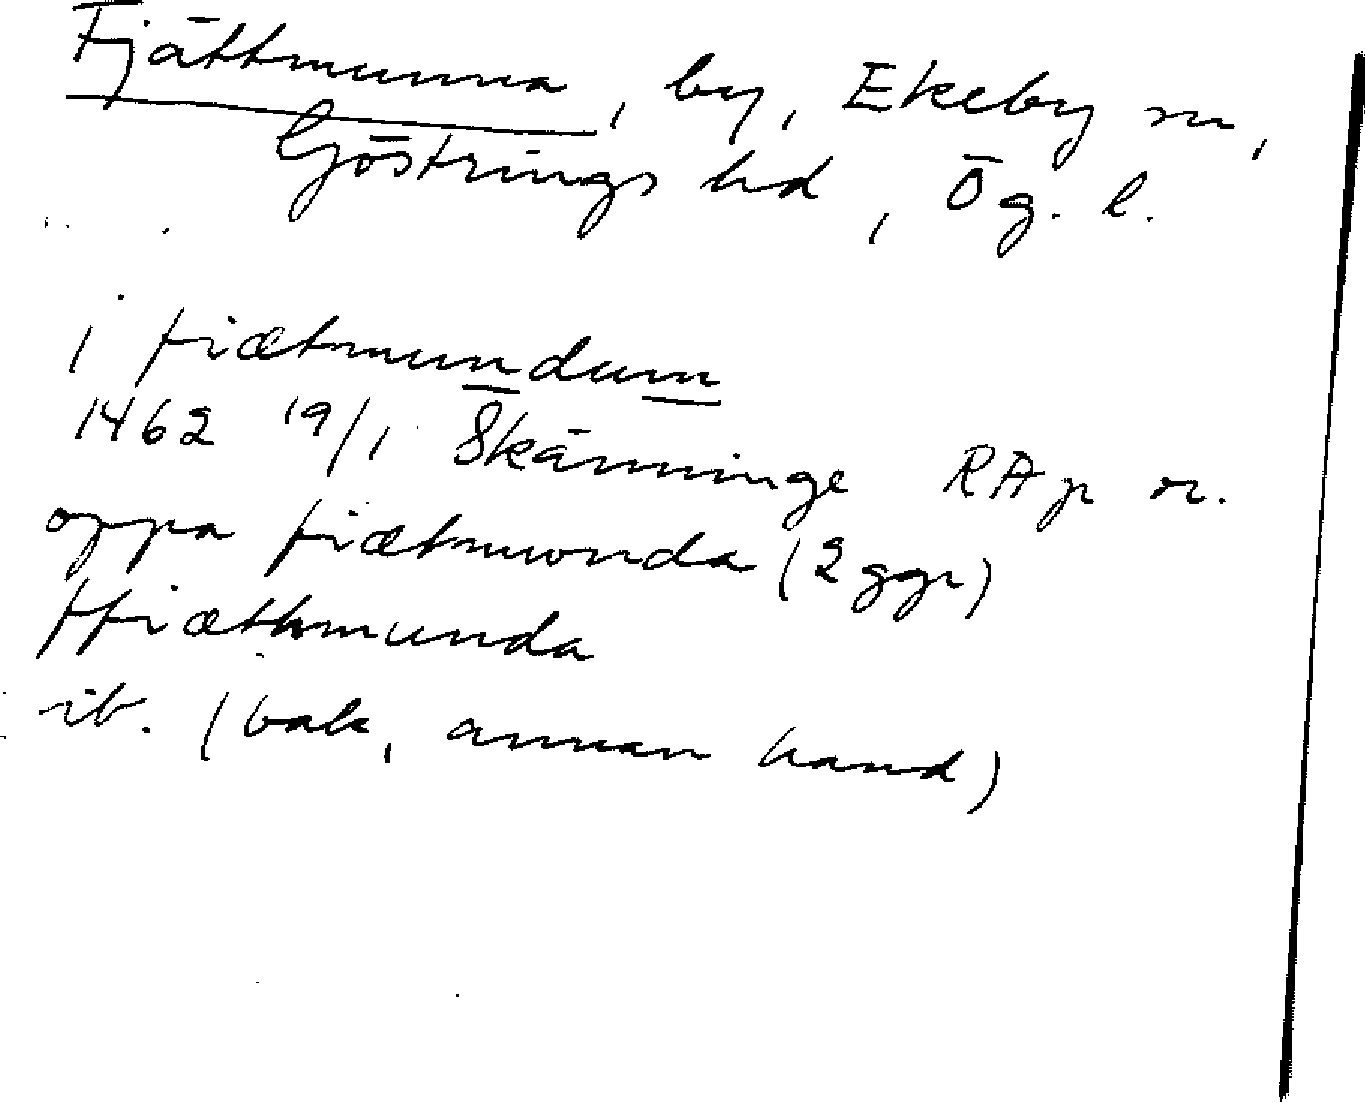 Fjättmunna, by, Ekeby sn,
Göstrings hd, Ög. l.
i fiætmundum
1462 19/1 Skänninge RAp or.
oppa fiætmwnda (2 ggr)
ffiæthmunda
ib. (bak, annan hand)